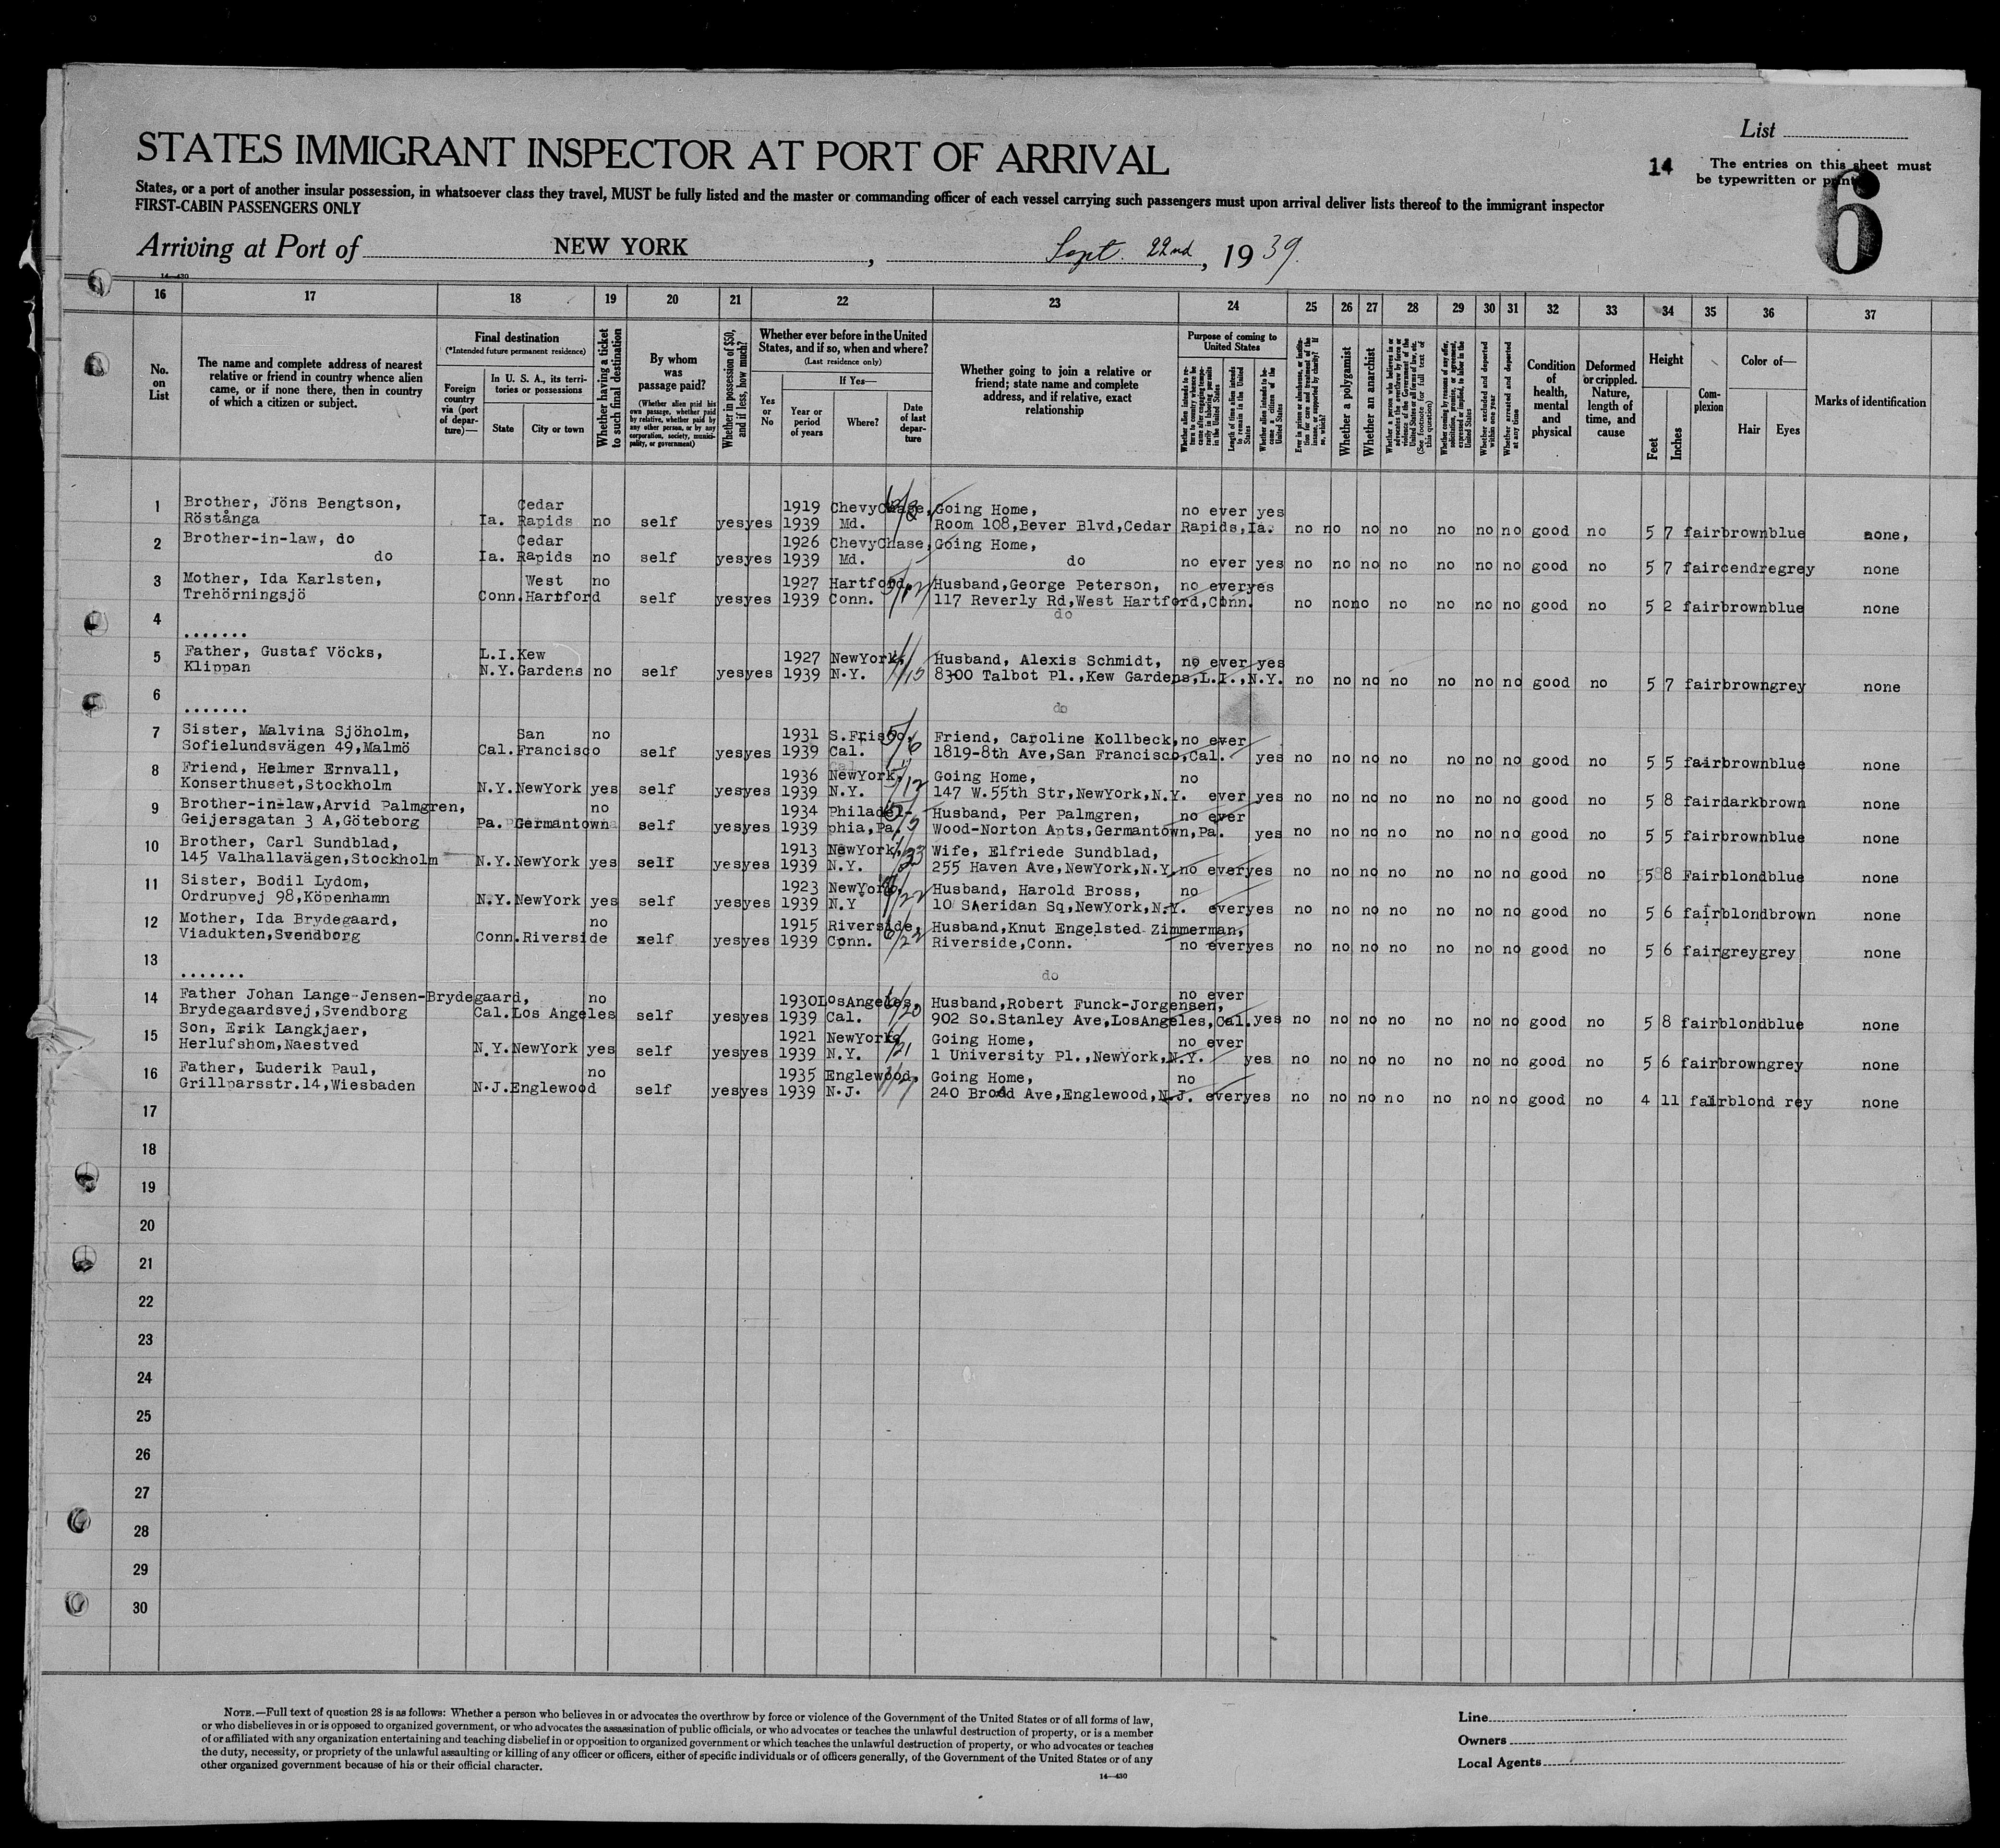 List
STATES IMMIGRANT INSPECTOR AT PORT OF ARRIVAL
14 The entries on this sheet must
be typewritten or print
6
States, or a port of another insular possession, in whatsoever class they travel, MUST be fully listed and the master or commanding officer of each vessel carrying such passengers must upon arrival deliver lists thereof to the immigrant inspector
FIRST-CABIN PASSENGERS ONLY
Arriving at Port of NEW YORK, Sept. 22nd, 1939.
14—430
16 17 18 19 20 21 22 23 24 25 26 27 28 29 30 31 32 33 34 35 36 37
No. on List
The name and complete address of nearest relative or friend in country whence alien came, or if none there, then in country of which a citizen or subject.
Final destination
(*Intended future permanent residence)
Foreign country via (port of departure)—
In U. S. A., its territories or possessions
State
City or town
Whether having a ticket to such final destination
By whom was passage paid?
(Whether alien paid his own passage, whether paid by relative, whether paid by any other person, or by any corporation, society, municipality, or government)
Whether in possession of $50, and if less, how much?
Whether ever before in the United States, and if so, when and where?
(Last residence only)
Yes or No
If Yes—
Year or period of years
Where?
Date of last departure
Whether going to join a relative or friend; state name and complete address, and if relative, exact relationship
Purpose of coming to United States
Length of time alien intends to remain in the United States
Whether alien intends to become a citizen of the United States
Whether a polygamist
Whether an anarchist
Whether excluded and deported within one year
Whether arrested and deported at any time
Condition of health, mental and physical
Deformed or crippled. Nature, length of time, and cause
Height
Feet
Inches
Complexion
Color of—
Hair
Eyes
Marks of identification
1 Brother, Jöns Bengtson, Cedar 1919 ChevyChase, Going Home, no ever yes
Röstånga Ia. Rapids no self yes yes 1939 Md. Room 108,Bever Blvd,Cedar Rapids,Ia. no no no no no no no good no 5 7 fair brown blue none,
2 Brother-in-law, do Cedar 1926 ChevyChase, Going Home,
do Ia. Rapids no self yes yes 1939 Md. do no ever yes no no no no no no no good no 5 7 fair cendre grey none
3 Mother, Ida Karlsten, West no 1927 Hartford, Husband,George Peterson, no ever yes
Trehörningsjö Conn. Hartford self yes yes 1939 Conn. 117 Reverly Rd,West Hartford,Conn. no no no no no no no good no 5 2 fair brown blue none
4 ....... do
5 Father, Gustaf Vöcks, L.I. Kew 1927 NewYork, Husband, Alexis Schmidt, no ever yes
Klippan N.Y. Gardens no self yes yes 1939 N.Y. 8300 Talbot Pl.,Kew Gardens,L.I.,N.Y. no no no no no no no good no 5 7 fair brown grey none
6 ....... do
7 Sister, Malvina Sjöholm, San no 1931 S.Frisco, Friend, Caroline Kollbeck, no ever
Sofielundsvägen 49,Malmö Cal. Francisco self yes yes 1939 Cal. 5/6 1819-8th Ave,San Francisco,Cal. yes no no no no no no no good no 5 5 fair brown blue none
8 Friend, Helmer Ernvall, 1936 NewYork, Going Home, no
Konserthuset,Stockholm N.Y. NewYork yes self yes yes 1939 N.Y. 147 W.55th Str,NewYork,N.Y. ever yes no no no no no no no good no 5 8 fair dark brown none
9 Brother-in-law,Arvid Palmgren, no 1934 Philadel- Husband, Per Palmgren, no ever
Geijersgatan 3 A,Göteborg Pa. Germantown self yes yes 1939 phia,Pa. Wood-Norton Apts,Germantown,Pa. yes no no no no no no no good no 5 5 fair brown blue none
10 Brother, Carl Sundblad, 1913 NewYork, Wife, Elfriede Sundblad,
145 Valhallavägen,Stockholm N.Y. NewYork yes self yes yes 1939 N.Y. 255 Haven Ave,NewYork,N.Y. no ever yes no no no no no no no good no 5 8 Fair blond blue none
11 Sister, Bodil Lydom, 1923 NewYork, Husband, Harold Bross, no
Ordrupvej 98,Köpenhamn N.Y. NewYork yes self yes yes 1939 N.Y 10 Sheridan Sq,NewYork,N.Y. ever yes no no no no no no no good no 5 6 fair blond brown none
12 Mother, Ida Brydegaard, no 1915 Riverside, Husband,Knut Engelsted Zimmerman,
Viadukten,Svendborg Conn. Riverside self yes yes 1939 Conn. 6/22 Riverside,Conn. no ever yes no no no no no no no good no 5 6 fair grey grey none
13 ....... do
14 Father Johan Lange-Jensen-Brydegaard, no 1930 LosAngeles, Husband,Robert Funck-Jorgensen, no ever
Brydegaardsvej,Svendborg Cal. Los Angeles self yes yes 1939 Cal. 902 So.Stanley Ave,LosAngeles,Cal. yes no no no no no no no good no 5 8 fair blond blue none
15 Son, Erik Langkjaer, 1921 NewYork, Going Home, no ever
Herlufshom,Naestved N.Y. NewYork yes self yes yes 1939 N.Y. 1 University Pl.,NewYork,N.Y. yes no no no no no no no good no 5 6 fair brown grey none
16 Father, Luderik Paul, no 1935 Englewood, Going Home, no
Grillparsstr.14,Wiesbaden N.J. Englewood self yes yes 1939 N.J. 240 Broad Ave,Englewood,N.J. ever yes no no no no no no no good no 4 11 fair blond rey none
17
18
19
20
21
22
23
24
25
26
27
28
29
30
NOTE.—Full text of question 28 is as follows: Whether a person who believes in or advocates the overthrow by force or violence of the Government of the United States or of all forms of law,
or who disbelieves in or is opposed to organized government, or who advocates the assassination of public officials, or who advocates or teaches the unlawful destruction of property, or is a member
of or affiliated with any organization entertaining and teaching disbelief in or opposition to organized government or which teaches the unlawful destruction of property, or who advocates or teaches
the duty, necessity, or propriety of the unlawful assaulting or killing of any officer or officers, either of specific individuals or of officers generally, of the Government of the United States or of any
other organized government because of his or their official character.
14—430
Line
Owners
Local Agents